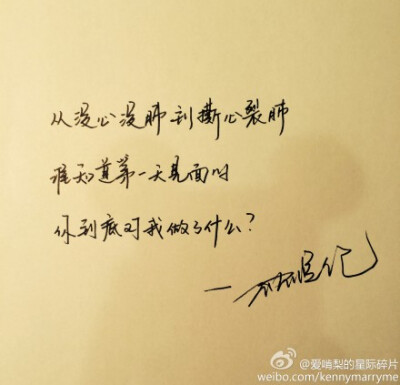 从没心没肺到撕心裂肺
谁知道第一天见面时
你到底对我做了什么？
@爱啃梨的星际碎片
weibo.com/kennymarryme